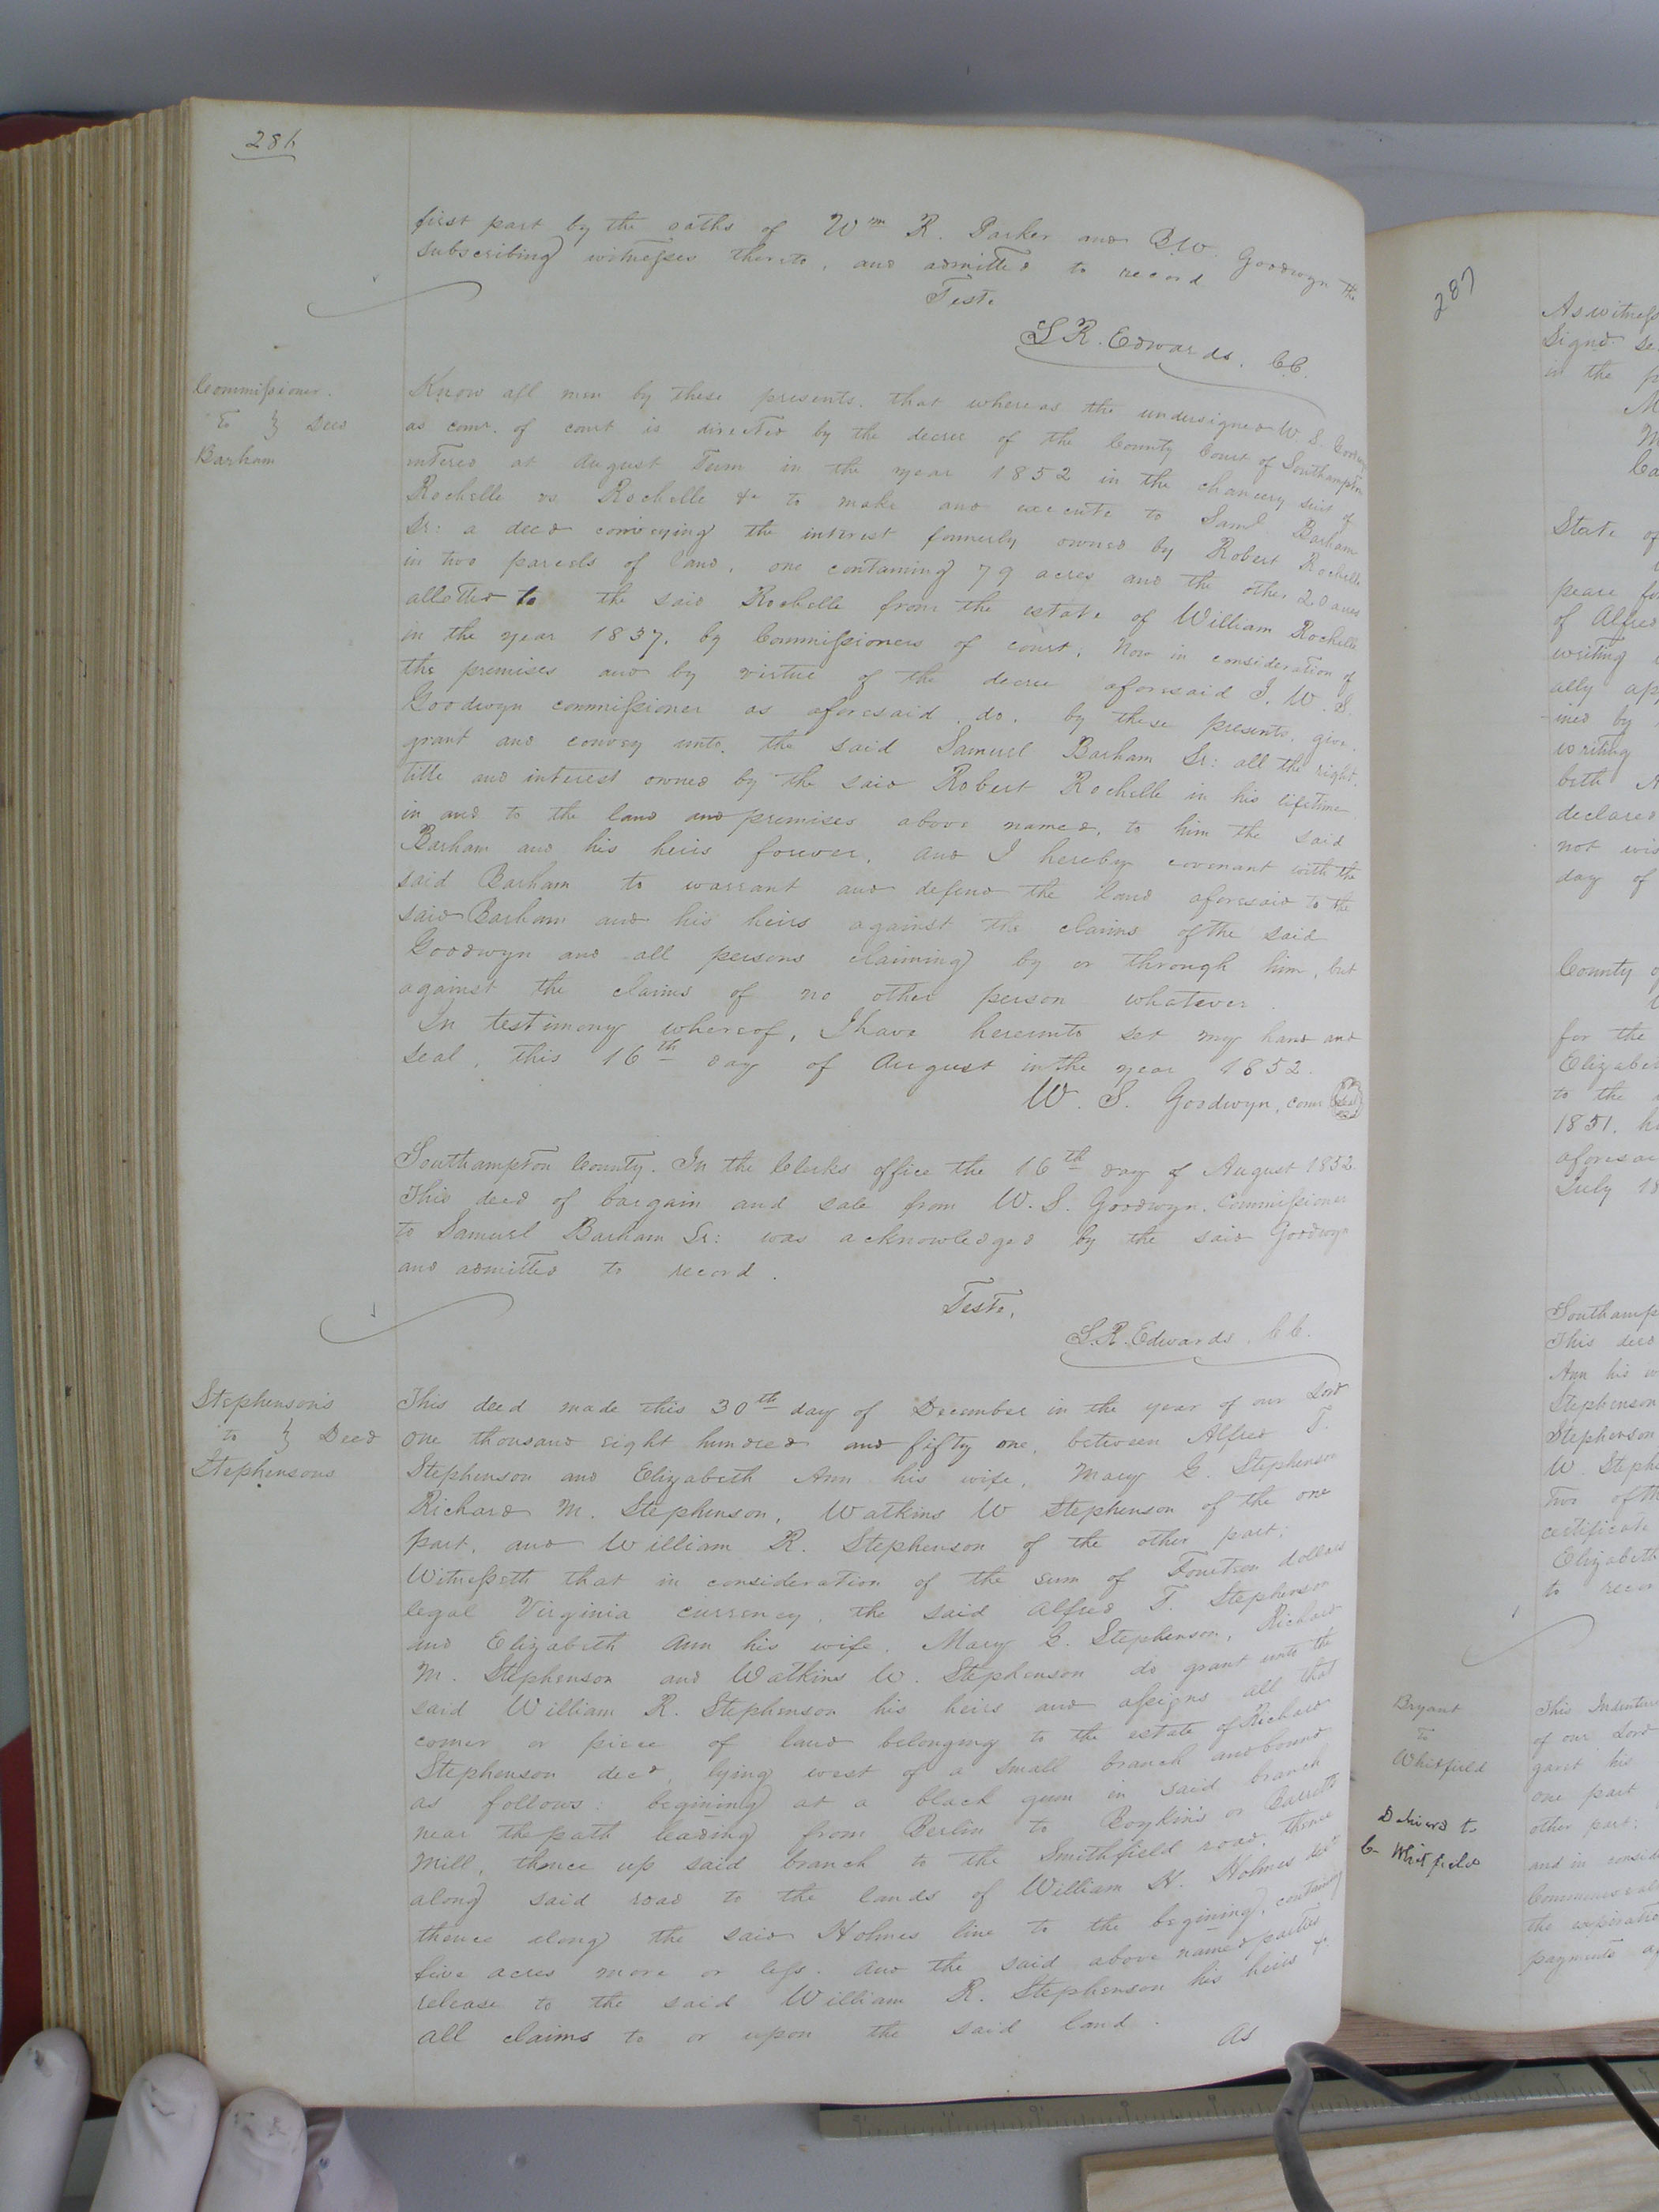 286
first part by the oaths of Wm R. Parker and B.W. Goodwyn the
subscribing witnesses thereto, and admitted to record
Teste
S R. Edwards, C.C.
Commissioner
to } Deed
Barham
Know all men by these presents, that whereas the undersigned W. S. Goodwyn
as comr. of court is directed by the decree of the County Court of Southampton
entered at August Term in the year 1852 in the chancery suit of
Rochelle vs Rochelle &c to make and execute to Saml Barham
Sr: a deed conveying the interest formerly owned by Robert Rochelle
in two parcels of land, one containing 79 acres and the other 20 acres
allotted to the said Rochelle from the estate of William Rochelle
in the year 1837, by Commissioners of court, Now in consideration of
the premises and by virtue of the decree aforesaid I, W. S.
Goodwyn commissioner as aforesaid, do, by these presents, give,
grant and convey unto, the said Samuel Barham Sr: all the right,
title and interest owned by the said Robert Rochelle in his lifetime
in and to the land and premises above named, to him the said
Barham and his heirs forever, and I hereby covenant with the
said Barham to warrant and defend the land aforesaid to the
said Barham and his heirs against the claims of the said
Goodwyn and all persons claiming by or through him, but
against the claims of no other person whatever.
In testimony whereof, I have hereunto set my hand and
seal, this 16th day of August in the year 1852.
W. S. Goodwyn, comr Seal
Southampton County. In the Clerks office the 16th day of August 1852.
This deed of bargain and sale from W. S. Goodwyn, Commissioner
to Samuel Barham Sr: was acknowledged by the said Goodwyn
and admitted to record.
Teste,
S.R. Edwards, C.C.
Stephenson's
to } Deed
Stephensons
This deed made this 30th day of December in the year of our Lord
one thousand eight hundred and fifty one, between Alfred T.
Stephenson and Elizabeth Ann his wife, Mary E. Stephenson
Richard M. Stephenson, Watkins W Stephenson of the one
part, and William R. Stephenson of the other part;
Witnesseth that in consideration of the sum of Fourteen dollars
legal Virginia currency, the said Alfred T. Stephenson
and Elizabeth Ann his wife, Mary E. Stephenson, Richard
M. Stephenson and Watkins W. Stephenson do grant unto the
said William R. Stephenson his heirs and assigns all that
corner or piece of land belonging to the estate of Richard
Stephenson decd, lying west of a small branch and bound
as follows: begining at a black gum in said branch
near the path leading from Berlin to Boykin's or Barretts
Mill, thence up said branch to the Smithfield road, thence
along said road to the lands of William H. Holmes
thence along the said Holmes line to the begining, containing
five acres more or less. And the said above named parties
release to the said William R. Stephenson his heirs &
all claims to or upon the said land.
As
287
As witness
Signd se
in the
State of
peace for
of Alfred
writing
ally ap
ined by
writing
beth A
declared
not wis
day of
County o
for the
Elizabet
to the
1851, h
aforesai
July 18
Southamp
This deed
Ann his w
Stephenson
Stephenson
W. Steph
two of th
certificate
Elizabeth
to recor
Bryant
to
Whitfield
Delivered to
C. Whitfield
This Indenture
of our Lord
garet his
one part
other part;
and in consid
the expiratio
payments